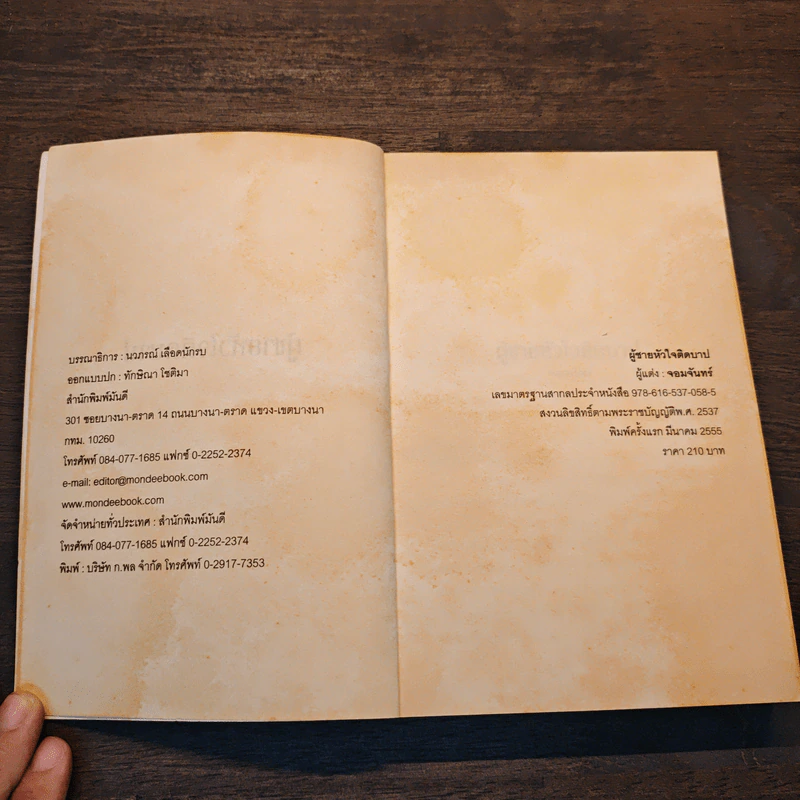 บรรณาธิการ : นวภรณ์ เลือดนักรบ
ออกแบบปก : ทักษิณา โชติมา
สำนักพิมพ์มันดี
301 ซอยบางนา-ตราด 14 ถนนบางนา-ตราด แขวง-เขตบางนา
กทม. 10260
โทรศัพท์ 084-077-1685 แฟกซ์ 0-2252-2374
e-mail: editor@mondeebook.com
www.mondeebook.com
จัดจำหน่ายทั่วประเทศ : สำนักพิมพ์มันดี
โทรศัพท์ 084-077-1685 แฟกซ์ 0-2252-2374
พิมพ์ : บริษัท ก.พล จำกัด โทรศัพท์ 0-2917-7353
ผู้ชายหัวใจติดบาป
ผู้แต่ง : จอมจันทร์
เลขมาตรฐานสากลประจำหนังสือ 978-616-537-058-5
สงวนลิขสิทธิ์ตามพระราชบัญญัติพ.ศ. 2537
พิมพ์ครั้งแรก มีนาคม 2555
ราคา 210 บาท